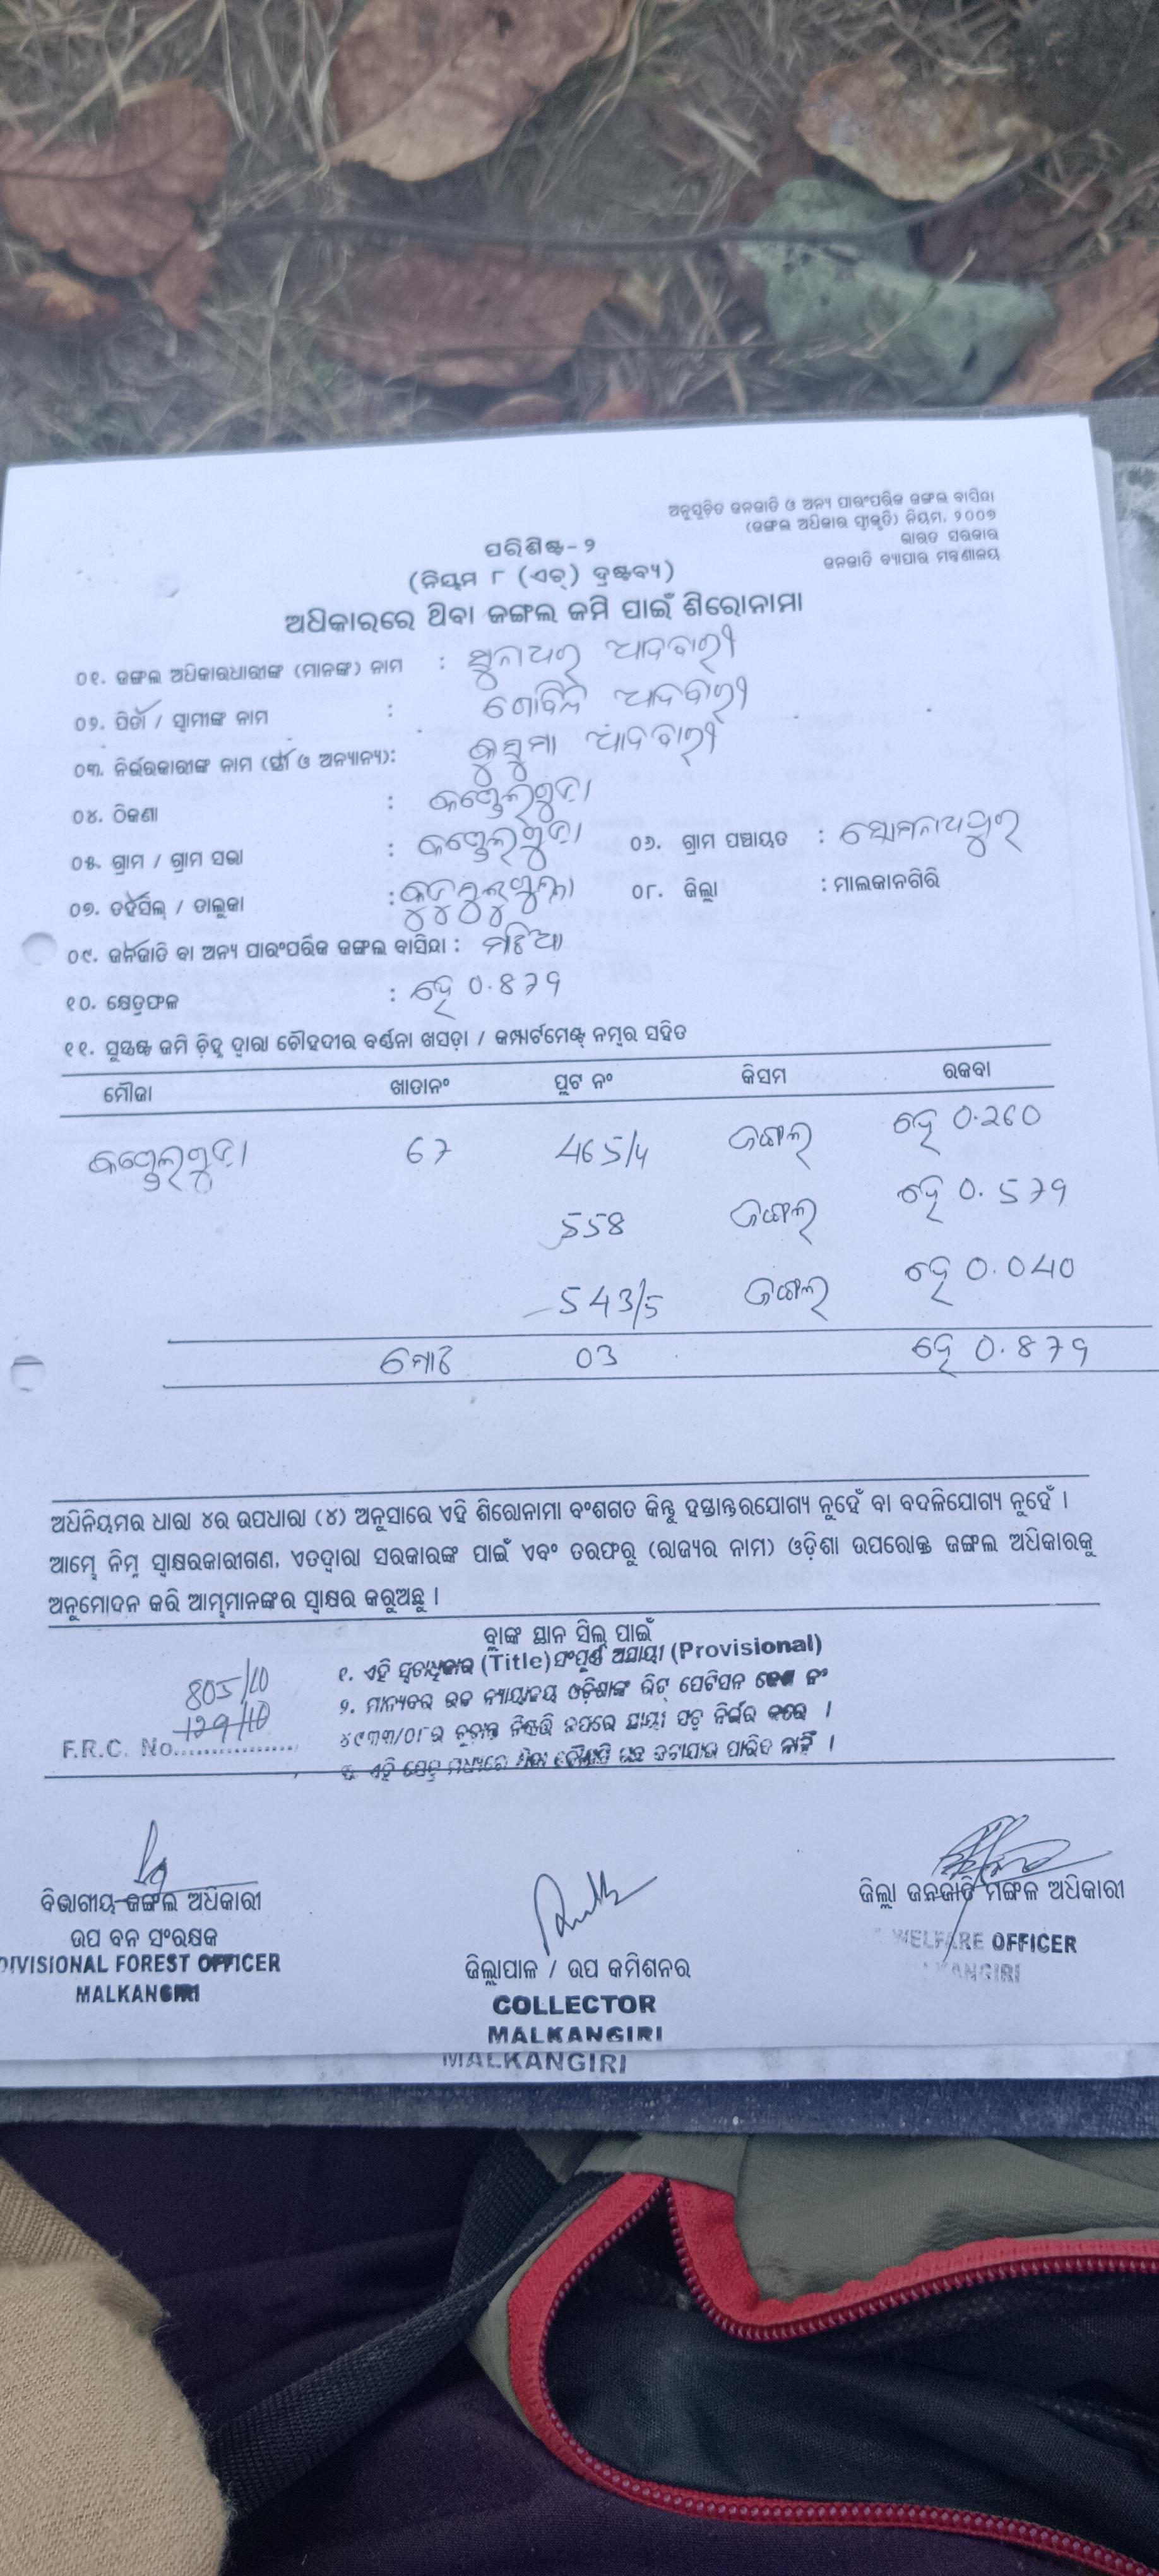 ଅନୁସୂଚିତ ଜନଜାତି ଓ ଅନ୍ୟ ପାରଂପରିକ ଜଙ୍ଗଲ ବାସିନ୍ଦା
(ଜଙ୍ଗଲ ଅଧିକାର ସ୍ୱୀକୃତି) ନିୟମ, ୨୦୦୭
ଭାରତ ସରକାର
ଜନଜାତି ବ୍ୟାପାର ମନ୍ତ୍ରଣାଳୟ
ପରିଶିଷ୍ଟ-୨
(ନିୟମ ୮ (ଏଚ୍) ଦ୍ରଷ୍ଟବ୍ୟ)
ଅଧିକାରରେ ଥିବା ଜଙ୍ଗଲ ଜମି ପାଇଁ ଶିରୋନାମା
୦୧. ଜଙ୍ଗଲ ଅଧିକାରଧାରୀଙ୍କ (ମାନଙ୍କ) ନାମ :
୦୨. ପିତା / ସ୍ୱାମୀଙ୍କ ନାମ : ଗୋବିନ୍ଦ
୦୩. ନିର୍ଭରକାରୀଙ୍କ ନାମ (ସ୍ତ୍ରୀ ଓ ଅନ୍ୟାନ୍ୟ):
୦୪. ଠିକଣା :
୦୫. ଗ୍ରାମ / ଗ୍ରାମ ସଭା : ୦୬. ଗ୍ରାମ ପଞ୍ଚାୟତ : ସୋମନାଥପୁର
୦୭. ତହସିଲ୍ / ତାଲୁକା : ୦୮. ଜିଲ୍ଲା : ମାଲକାନଗିରି
୦୯. ଜନଜାତି ବା ଅନ୍ୟ ପାରଂପରିକ ଜଙ୍ଗଲ ବାସିନ୍ଦା :
୧୦. କ୍ଷେତ୍ରଫଳ : ହେ 0.879
୧୧. ସୁସ୍ପଷ୍ଟ ଜମି ଚିହ୍ନ ଦ୍ୱାରା ଚୌହଦୀର ବର୍ଣ୍ଣନା ଖସଡ଼ା / କମ୍ପାର୍ଟମେଣ୍ଟ୍ ନମ୍ବର ସହିତ
ମୌଜା ଖାତାନଂ ପ୍ଲଟ ନଂ କିସମ ରକବା
67 465/4 ଜଙ୍ଗଲ ହେ 0.260
558 ଜଙ୍ଗଲ ହେ 0.579
543/5 ଜଙ୍ଗଲ ହେ 0.040
ମୋଟ 03 ହେ 0.879
ଅଧିନିୟମର ଧାରା ୪ର ଉପଧାରା (୪) ଅନୁସାରେ ଏହି ଶିରୋନାମା ବଂଶଗତ କିନ୍ତୁ ହସ୍ତାନ୍ତରଯୋଗ୍ୟ ନୁହେଁ ବା ବଦଳିଯୋଗ୍ୟ ନୁହେଁ ।
ଆମ୍ଭେ ନିମ୍ନ ସ୍ୱାକ୍ଷରକାରୀଗଣ, ଏତଦ୍ୱାରା ସରକାରଙ୍କ ପାଇଁ ଏବଂ ତରଫରୁ (ରାଜ୍ୟର ନାମ) ଓଡ଼ିଶା ଉପରୋକ୍ତ ଜଙ୍ଗଲ ଅଧିକାରକୁ
ଅନୁମୋଦନ କରି ଆମ୍ଭମାନଙ୍କର ସ୍ୱାକ୍ଷର କରୁଅଛୁ ।
ବ୍ଲାଙ୍କ ସ୍ଥାନ ସିଲ୍ ପାଇଁ
୧. ଏହି (Title) ସଂପୂର୍ଣ୍ଣ (Provisional)
805/10
୨. ମାନ୍ୟବର ଉଚ୍ଚ ନ୍ୟାୟାଳୟ ଓଡ଼ିଶାଙ୍କ ରିଟ୍ ପେଟିସନ
129/10
୪୯୩୩/୦୮ର ଚୂଡାନ୍ତ
F.R.C. No.
ବିଭାଗୀୟ ଜଙ୍ଗଲ ଅଧିକାରୀ
ଉପ ବନ ସଂରକ୍ଷକ
DIVISIONAL FOREST OFFICER
MALKANGIRI
ଜିଲ୍ଲାପାଳ / ଉପ କମିଶନର
COLLECTOR
MALKANGIRI
MALKANGIRI
ଜିଲ୍ଲା ଜନଜାତି ମଙ୍ଗଳ ଅଧିକାରୀ
WELFARE OFFICER